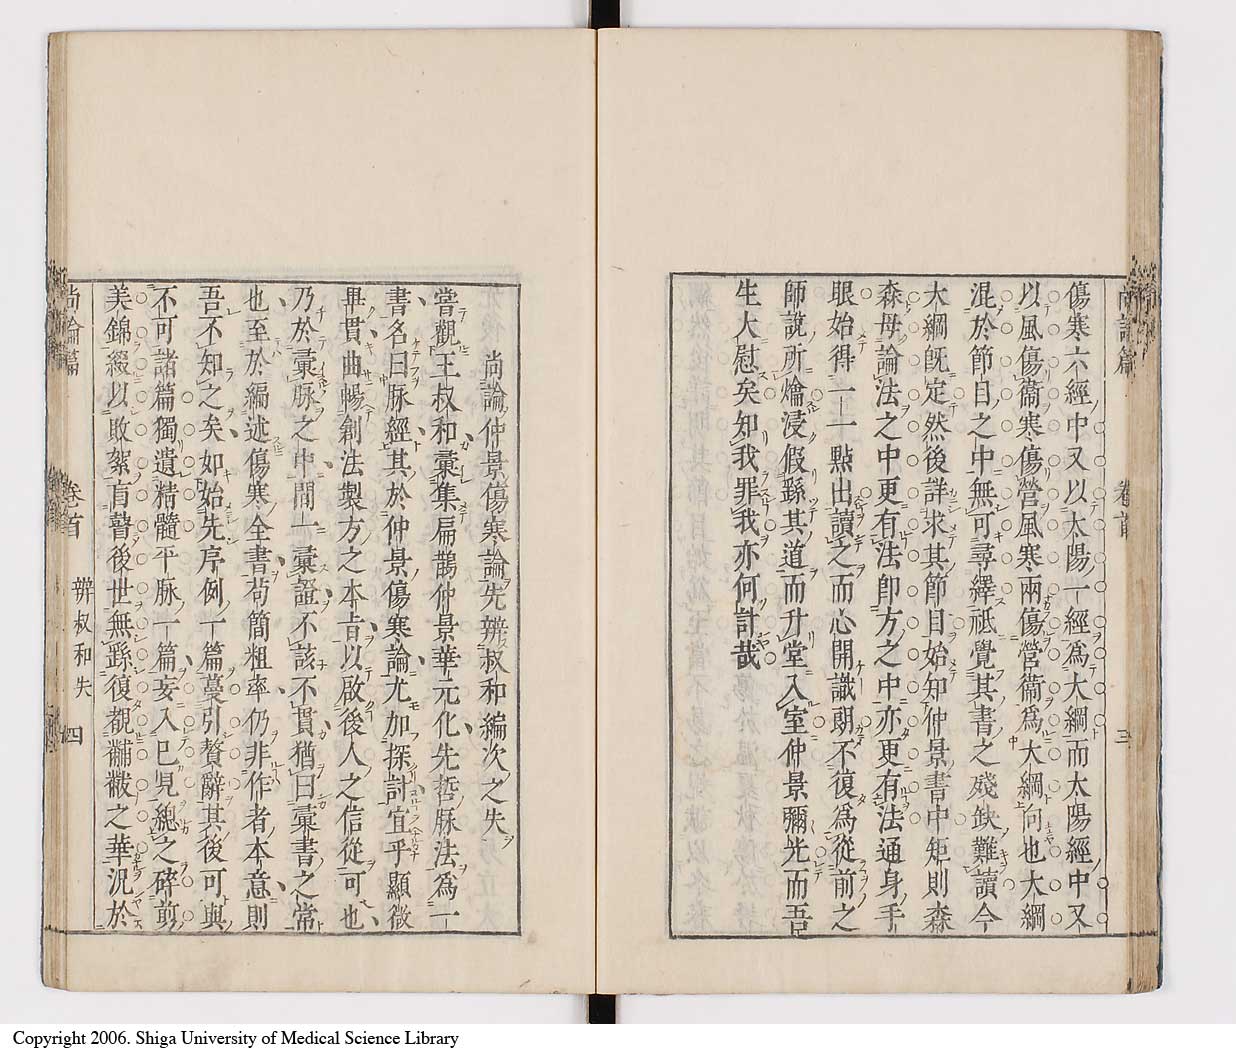 尚論篇　卷首　三
傷寒六經中又以太陽一經爲大綱而太陽經中又
以風傷衞寒傷營風寒兩傷營衞爲大綱何也大綱
混於節目之中無可尋繹祇覺其書之殘缺難讀今
大綱既定然後詳求其節目始知仲景書中矩則森
森毋論法之中更有法卽方之中亦更有法通身手
眼始得一一點出讀之而心開識朗不復爲從前之
師說所燴浸假繇其道而升堂入室仲景彌光而吾
生大慰矣知我罪我亦何計哉
尚論仲景傷寒論先辨叔和編次之失
嘗觀王叔和彙集扁鵲仲景華元化先哲脉法爲一
書名曰脉經其於仲景傷寒論尤加探討宜乎顯微
畢貫曲暢創法製方之本旨以啟後人之信從可也
乃於彙脉之中間一彙證不該不貫猶曰彙書之常
也至於編述傷寒全書苟簡粗率仍非作者本意則
吾不知之矣如始先序例一篇蔓引贅辭其後可與
不可諸篇獨遺精髓平脉一篇妄入已見總之碎剪
美錦綴以敗絮盲瞽後世無繇復覩黼黻之華況於
尚論篇　卷首　辨叔和失　四
Copyright 2006. Shiga University of Medical Science Library